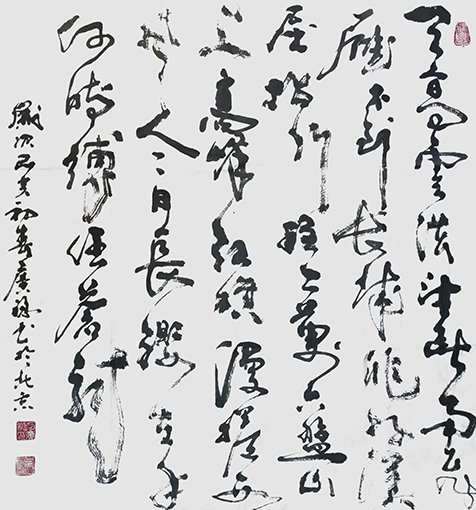 天高雲淡望斷南飛
雁不到長城非好漢
屈指行程二萬六盤山
上高峰紅旗漫捲西
風今日長纓在手
何時縛住蒼龍
歲次己亥初春廣書於北京